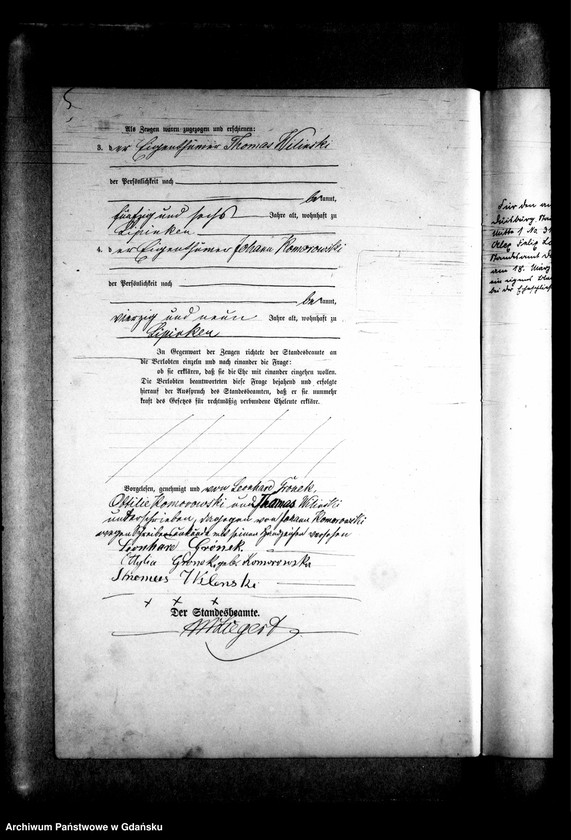 Als Zeugen waren zugezogen und erschienen:
3. der Eigenthümer Thomas Wilinski
der Persönlichkeit nach
bekannt,
fünfzig und sechs Jahre alt, wohnhaft zu
Lipinken
4. der Eigenthümer Johann Komorowski
der Persönlichkeit nach
bekannt,
vierzig und neun Jahre alt, wohnhaft zu
Lipinken
In Gegenwart der Zeugen richtete der Standesbeamte an
die Verlobten einzeln und nach einander die Frage:
ob sie erklären, daß sie die Ehe mit einander eingehen wollen.
Die Verlobten beantworteten diese Frage bejahend und erfolgte
hierauf der Ausspruch des Standesbeamten, daß er sie nunmehr
kraft des Gesetzes für rechtmäßig verbundene Eheleute erkläre.
Vorgelesen, genehmigt und von Leonhard Gronek,
Ottilie Komorowski und Thomas Wilinski
unterschrieben, dagegen von Johann Komorowski
wegen mit seinem Handzeichen versehen
Leonhard Gronek.
geb. Komorowska
Wilenski
+ + +
Der Standesbeamte.
am 18. März
Archiwum Państwowe w Gdańsku